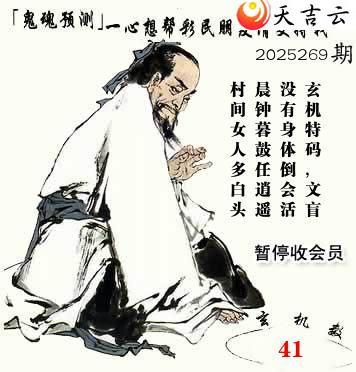 天吉云
「鬼魂预测」一心想帮彩民朋友
2025269期
玄机特码，文盲
没有身体倒会活
晨钟暮鼓任逍遥
村间女人多白头
暂停收会员
玄机
41